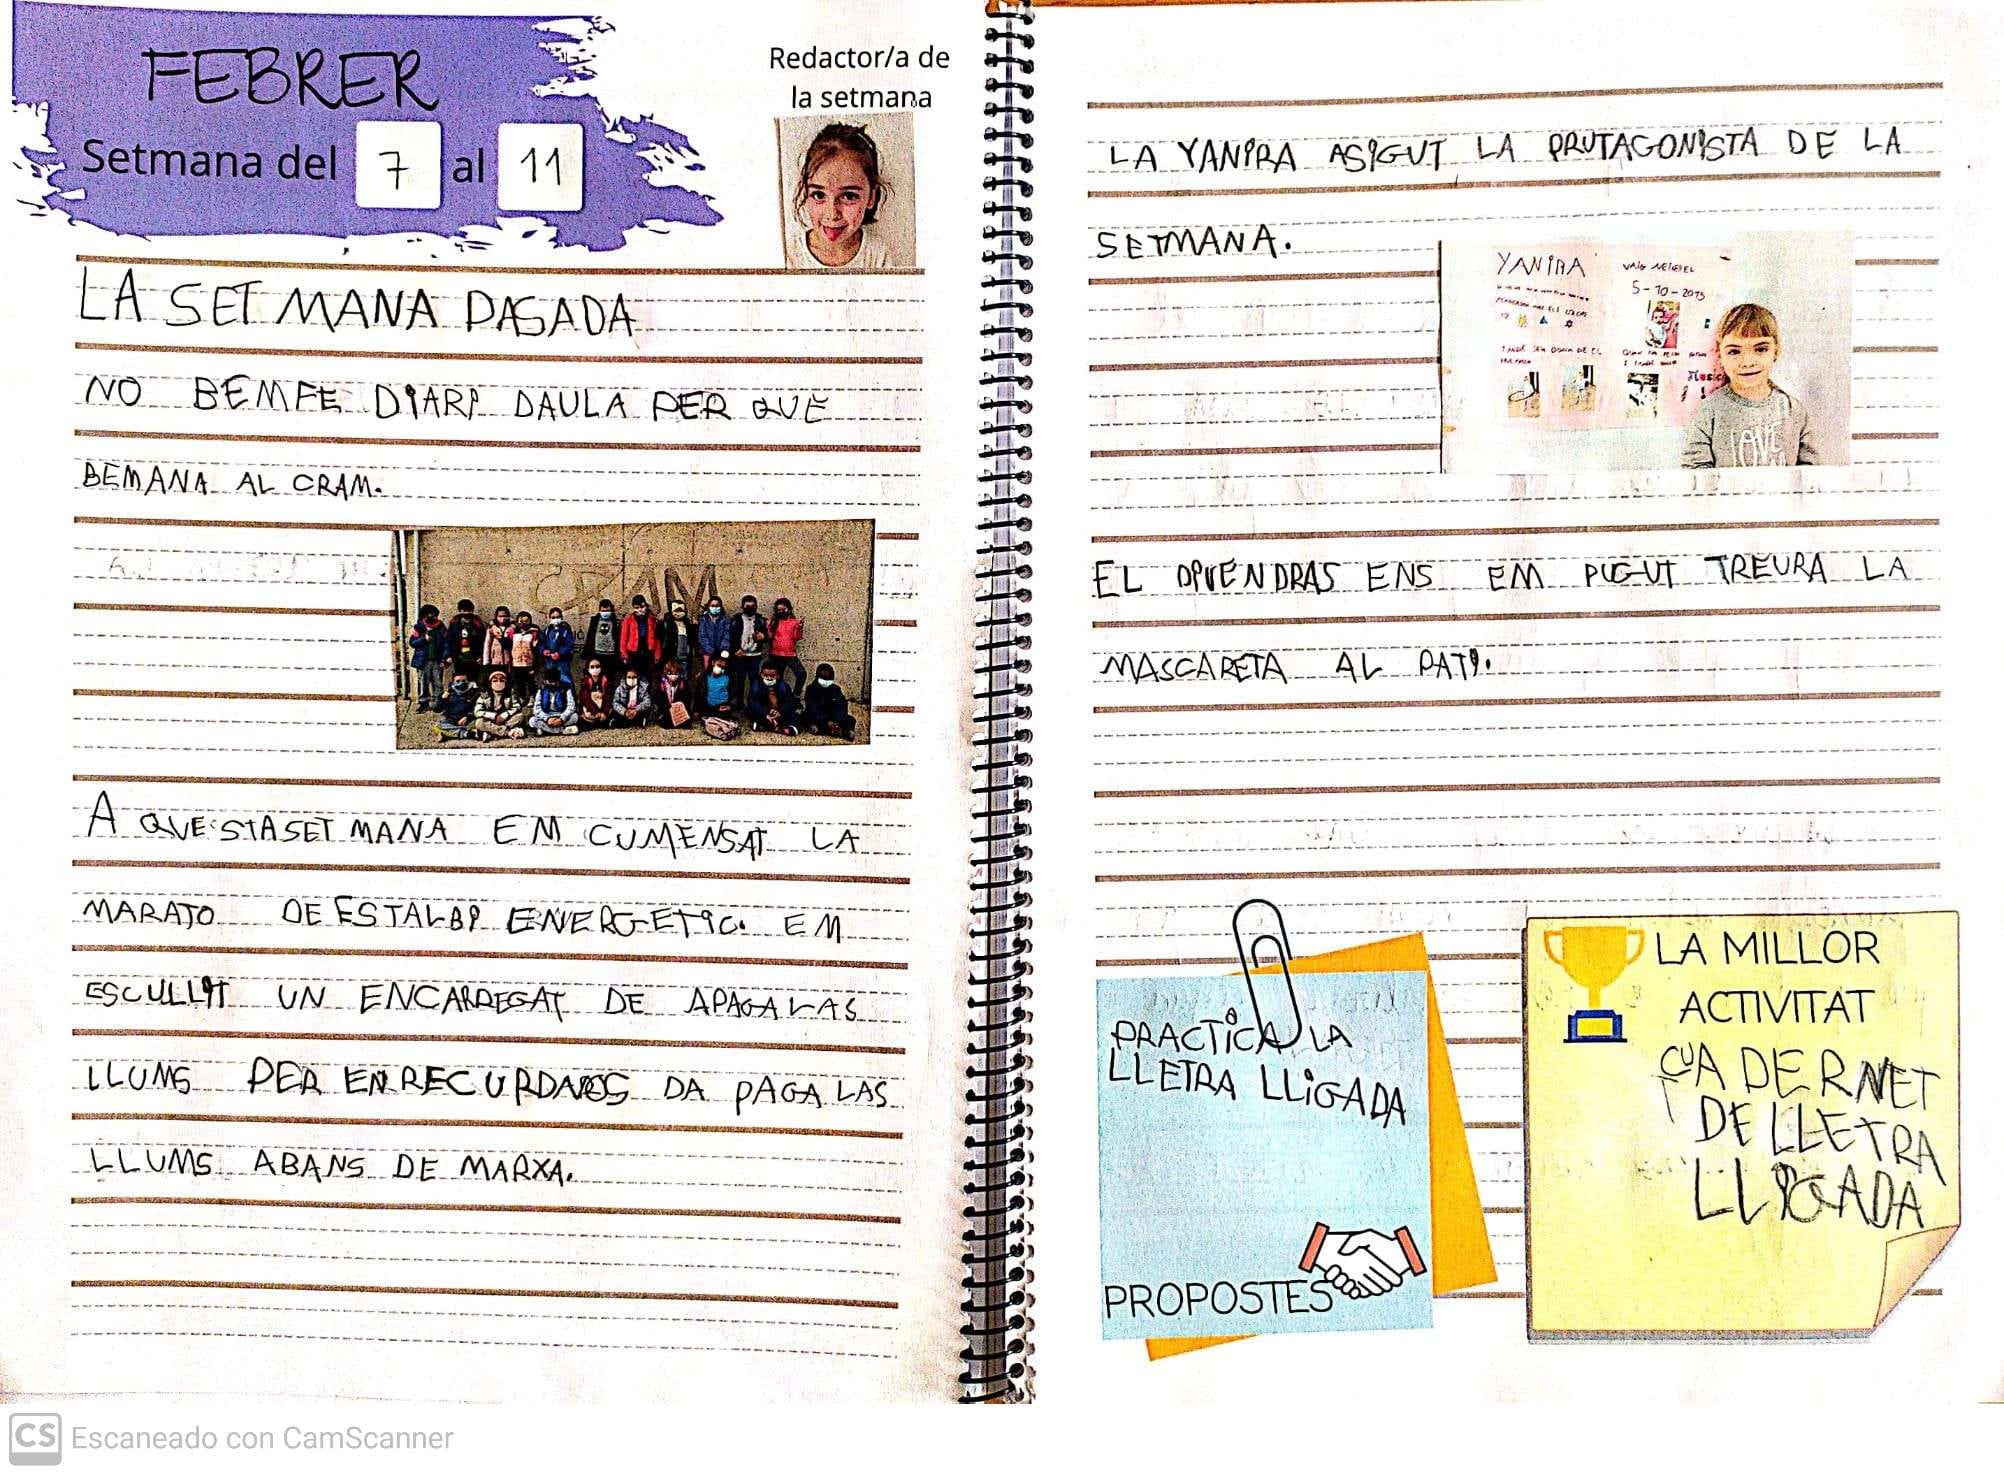 FEBRER
Setmana del 7 al 11
Redactor/a de
la setmana
LA SET MANA PASADA
NO BEMFE DIARI DAULA PER QUE
BEMANA AL CRAM.
CRAM
A QUESTASET MANA EM CUMENSAT LA
MARATO DE ESTALBI ENERGETIC. EM
ESCULLIT UN ENCARREGAT DE APAGA LAS
LLUMS PER EN RECURDARNOS DA PAGA LAS
LLUMS ABANS DE MARXA.
LA YANIRA ASIGUT LA PRUTAGONISTA DE LA
SETMANA.
YANIRA
VAIG NEIXER EL
5-10-2015
LOVE
EL DIVENDRAS ENS EM PUGUT TREURA LA
MASCARETA AL PATI.
PRACTICA LA
LLETRA LLIGADA
PROPOSTES
LA MILLOR
ACTIVITAT
CUADERNET
DE LLETRA
LLIGADA
CS Escaneado con CamScanner